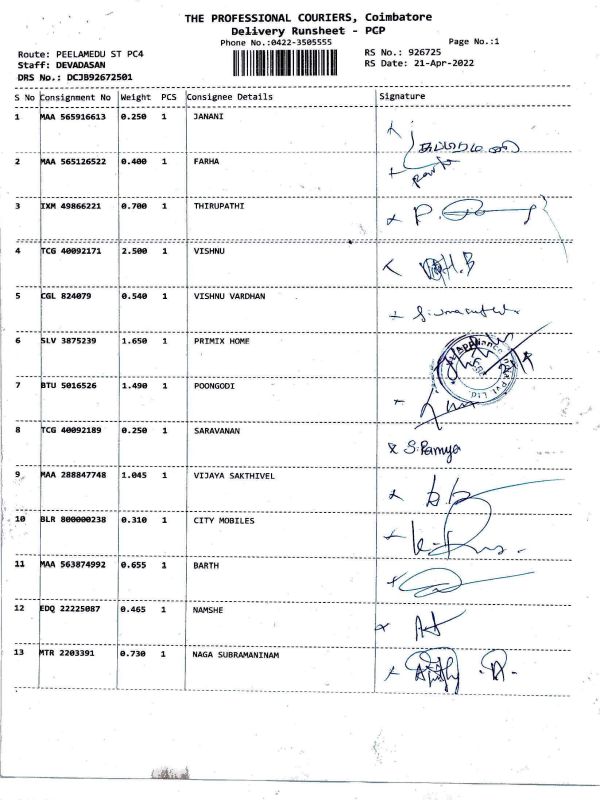 THE PROFESSIONAL COURIERS, Coimbatore
Delivery Runsheet - PCP
Phone No.:0422-3505555
Page No.:1
Route: PEELAMEDU ST PC4
RS No.: 926725
Staff: DEVADASAN
RS Date: 21-Apr-2022
DRS No.: DCJB92672501
S No Consignment No Weight PCS Consignee Details Signature
1 MAA 565916613 0.250 1 JANANI
2 MAA 565126522 0.400 1 FARHA
3 IXM 49866221 0.700 1 THIRUPATHI
4 TCG 40092171 2.500 1 VISHNU
5 CGL 824079 0.540 1 VISHNU VARDHAN
6 SLV 3875239 1.650 1 PRIMIX HOME
7 BTU 5016526 1.490 1 POONGODI
8 TCG 40092189 0.250 1 SARAVANAN S. Ramya
9 MAA 288847748 1.045 1 VIJAYA SAKTHIVEL
10 BLR 800000238 0.310 1 CITY MOBILES
11 MAA 563874992 0.655 1 BARTH
12 EDQ 22225087 0.465 1 NAMSHE
13 MTR 2203391 0.730 1 NAGA SUBRAMANINAM